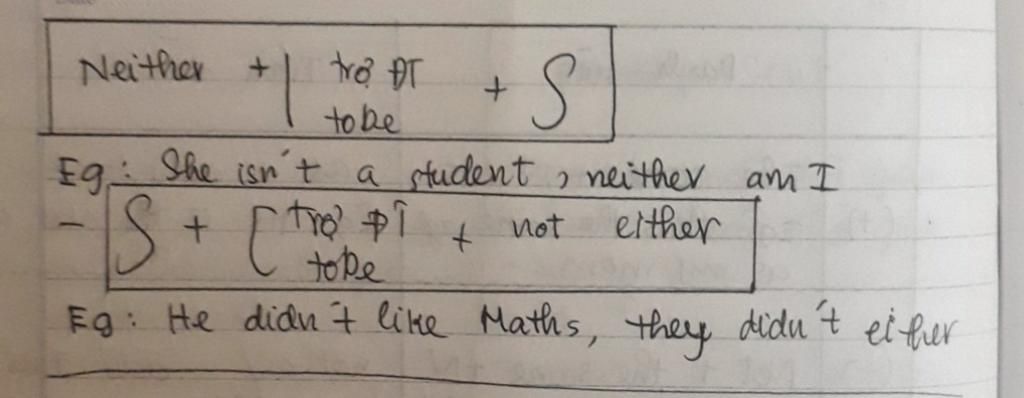 Neither + | trợ ĐT + S
tobe
Eg: She isn't a student, neither am I
- S + [ trợ ĐT + not either
tobe
Eg: He didn't like Maths, they didn't either